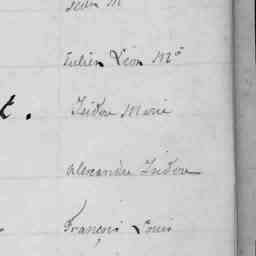 Jean M
Julien Léon Mie
t. Isidore Marie
Alexandre Isidore
François Louis